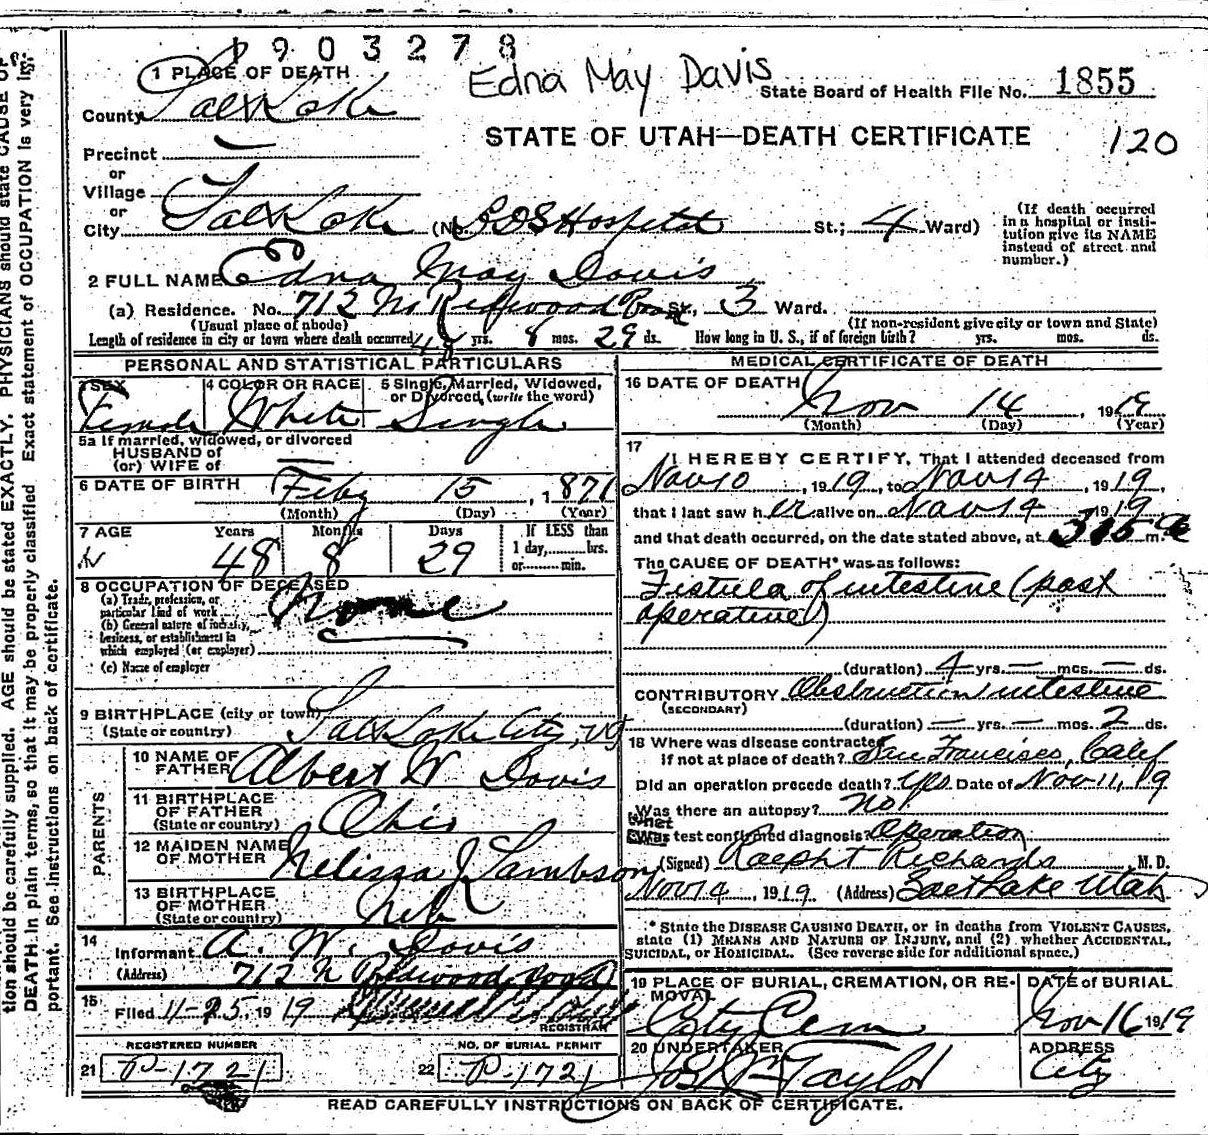 1903278
Edna May Davis
State Board of Health File No. 1855
STATE OF UTAH—DEATH CERTIFICATE
120
1 PLACE OF DEATH
County Salt Lake
Precinct
or
Village
or
City Salt Lake (No. LDS Hospital St.; 4 Ward)
(If death occurred in a hospital or institution give its NAME instead of street and number.)
2 FULL NAME Edna May Davis
(a) Residence. No. 712 N. Redwood Road St., 3 Ward.
(Usual place of abode) (If non-resident give city or town and State)
Length of residence in city or town where death occurred 48 yrs. 8 mos. 29 ds. How long in U. S., if of foreign birth? yrs. mos. ds.
PERSONAL AND STATISTICAL PARTICULARS
3 SEX Female
4 COLOR OR RACE White
5 Single, Married, Widowed, or Divorced, (write the word) Single
5a If married, widowed, or divorced
HUSBAND of
(or) WIFE of
6 DATE OF BIRTH Feby 15, 1871
(Month) (Day) (Year)
7 AGE Years 48 Months 8 Days 29
If LESS than
1 day, hrs.
or min.
8 OCCUPATION OF DECEASED
(a) Trade, profession, or
particular kind of work
(b) General nature of industry,
business, or establishment in
which employed (or employer)
(c) Name of employer
None
9 BIRTHPLACE (city or town)
(State or country) Salt Lake City, Ut
PARENTS
10 NAME OF
FATHER Albert W Davis
11 BIRTHPLACE
OF FATHER
(State or country) Ohio
12 MAIDEN NAME
OF MOTHER Melissa J Lambson
13 BIRTHPLACE
OF MOTHER
(State or country) Neb
14
Informant A. W. Davis
(Address) 712 N Redwood Road
15
Filed 11-25, 1919
REGISTRAR
REGISTERED NUMBER
21 P-1721
NO. OF BURIAL PERMIT
22 P-1721
MEDICAL CERTIFICATE OF DEATH
16 DATE OF DEATH
Nov 14, 1919
(Month) (Day) (Year)
17
I HEREBY CERTIFY, That I attended deceased from
Nov 10, 1919, to Nov 14, 1919,
that I last saw her alive on Nov 14 1919
and that death occurred, on the date stated above, at 315 a m.
The CAUSE OF DEATH* was as follows:
Fistula of intestine (post
operative)
(duration) 4 yrs. — mos. — ds.
CONTRIBUTORY Obstruction intestine
(SECONDARY)
(duration) — yrs. — mos. 2 ds.
18 Where was disease contracted
if not at place of death? San Francisco, Calif
Did an operation precede death? Yes Date of Nov 11, 19
Was there an autopsy? No
What test confirmed diagnosis? Operation
(Signed) Ralph T Richards, M. D.
Nov 14, 1919 (Address) Salt Lake Utah
* State the DISEASE CAUSING DEATH, or in deaths from VIOLENT CAUSES,
state (1) MEANS AND NATURE OF INJURY, and (2) whether ACCIDENTAL,
SUICIDAL, or HOMICIDAL. (See reverse side for additional space.)
19 PLACE OF BURIAL, CREMATION, OR REMOVAL
City Cem
DATE of BURIAL
Nov 16 1919
20 UNDERTAKER
Jos Wm Taylor
ADDRESS
City
READ CAREFULLY INSTRUCTIONS ON BACK OF CERTIFICATE.
tion should be carefully supplied. AGE should be stated EXACTLY. PHYSICIANS should state CAUSE OF
DEATH in plain terms, so that it may be properly classified Exact statement of OCCUPATION is very im-
portant. See instructions on back of certificate.